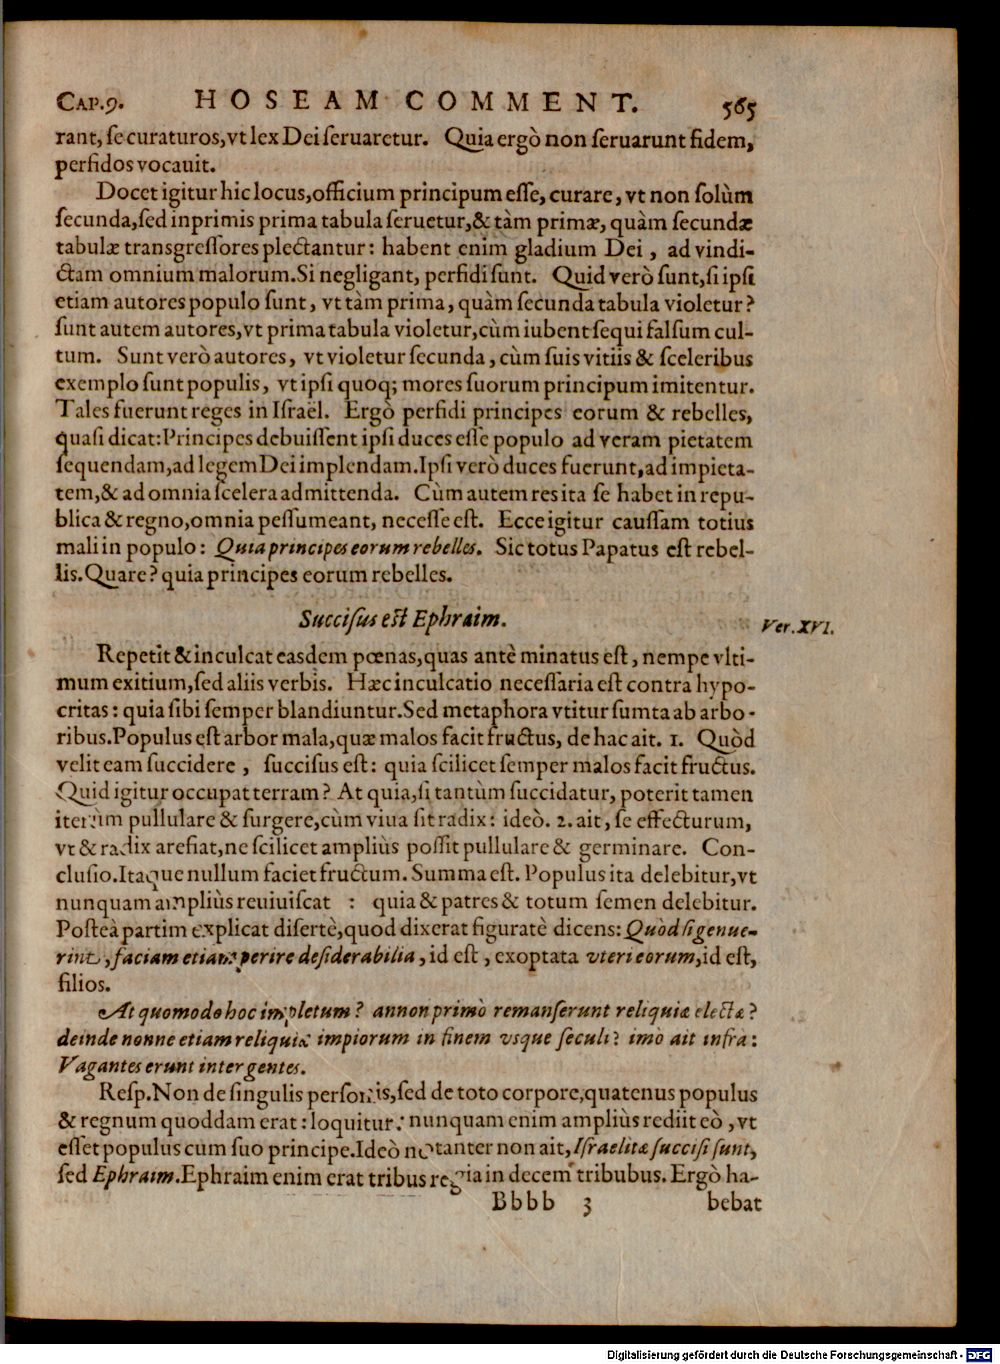 CAP.9. HOSEAM COMMENT. 565
rant, ſe curaturos, vt lex Dei ſeruaretur. Quia ergò non ſeruarunt fidem,
perfidos vocauit.
Docet igitur hic locus, officium principum eſſe, curare, vt non ſolùm
ſecunda, ſed inprimis prima tabula ſeruetur, & tàm primæ, quàm ſecundæ
tabulæ transgreſſores plectantur: habent enim gladium Dei, ad vindi-
ctam omnium malorum. Si negligant, perfidi ſunt. Quid verò ſunt, ſi ipſi
etiam autores populo ſunt, vt tàm prima, quàm ſecunda tabula violetur?
ſunt autem autores, vt prima tabula violetur, cùm iubent ſequi falſum cul-
tum. Sunt verò autores, vt violetur ſecunda, cùm ſuis vitiis & ſceleribus
exemplo ſunt populis, vt ipſi quoq; mores ſuorum principum imitentur.
Tales fuerunt reges in Iſraël. Ergò perfidi principes eorum & rebelles,
quaſi dicat: Principes debuiſſent ipſi duces eſſe populo ad veram pietatem
ſequendam, ad legem Dei implendam. Ipſi verò duces fuerunt, ad impieta-
tem, & ad omnia ſcelera admittenda. Cùm autem res ita ſe habet in repu-
blica & regno, omnia peſſum eant, neceſſe eſt. Ecce igitur cauſſam totius
mali in populo: Quia principes eorum rebelles. Sic totus Papatus eſt rebel-
lis. Quare? quia principes eorum rebelles.
Succiſus eſt Ephraim. Ver. XVI.
Repetit & inculcat easdem pœnas, quas antè minatus eſt, nempe vlti-
mum exitium, ſed aliis verbis. Hæc inculcatio neceſſaria eſt contra hypo-
critas: quia ſibi ſemper blandiuntur. Sed metaphora vtitur ſumta ab arbo-
ribus. Populus eſt arbor mala, quæ malos facit fructus, de hac ait. 1. Quòd
velit eam ſuccidere, ſucciſus eſt: quia ſcilicet ſemper malos facit fructus.
Quid igitur occupat terram? At quia, ſi tantùm ſuccidatur, poterit tamen
iterùm pullulare & ſurgere, cùm viua ſit radix: ideò. 2. ait, ſe effecturum,
vt & radix arefiat, ne ſcilicet ampliùs poſſit pullulare & germinare. Con-
cluſio. Itaque nullum faciet fructum. Summa eſt. Populus ita delebitur, vt
nunquam ampliùs reuiuiſcat : quia & patres & totum ſemen delebitur.
Poſteà partim explicat diſertè, quod dixerat figuratè dicens: Quòd ſi genue-
rint, faciam etiam perire deſiderabilia, id eſt, exoptata vteri eorum, id eſt,
filios.
At quomodo hoc impletum? annon primò remanſerunt reliquiæ electæ?
deinde nonne etiam reliquiæ impiorum in finem vsque ſeculi? imò ait infrà:
Vagantes erunt inter gentes.
Reſp. Non de ſingulis perſonis, ſed de toto corpore, quatenus populus
& regnum quoddam erat: loquitur: nunquam enim ampliùs rediit eò, vt
eſſet populus cum ſuo principe. Ideò notanter non ait, Iſraelitæ ſucciſi ſunt,
ſed Ephraim. Ephraim enim erat tribus regia in decem tribubus. Ergò ha-
Bbbb 3 bebat
Digitalisierung gefördert durch die Deutsche Forschungsgemeinschaft - DFG